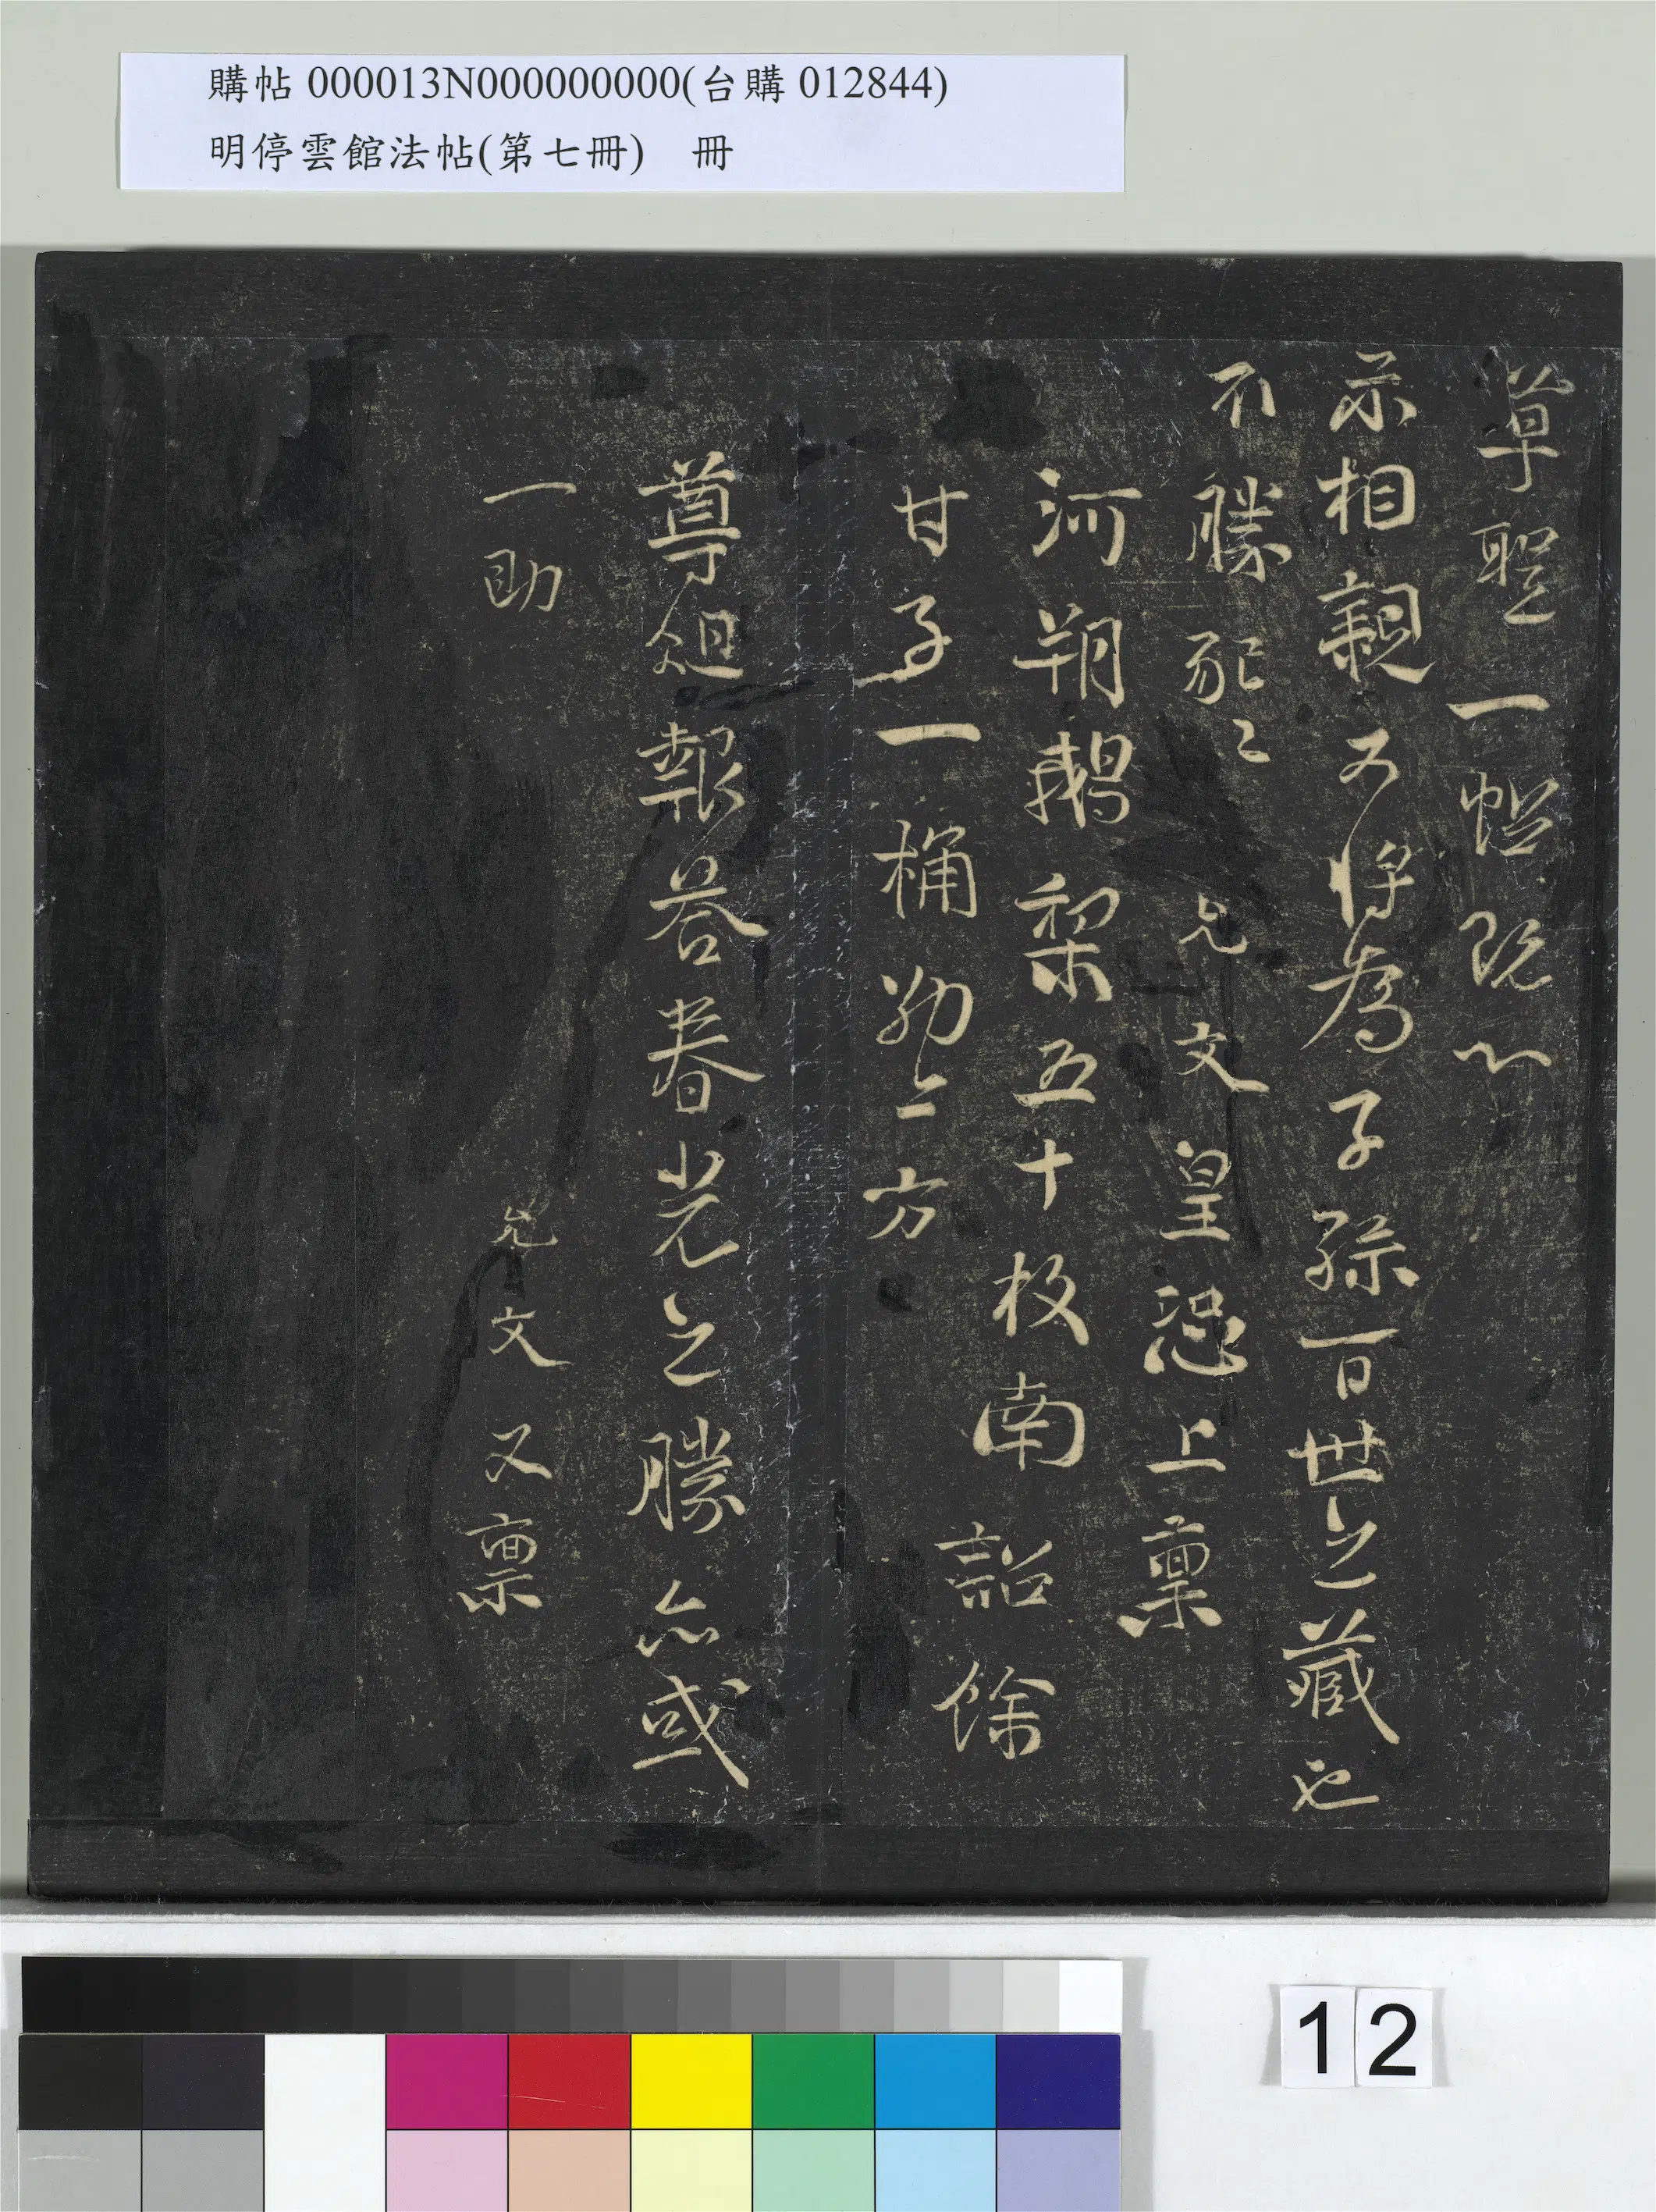 購帖 000013N000000000(台購 012844)
明停雲館法帖(第七冊) 冊
草聖一幅既以
示相親又將為子孫百世之藏也
不勝
允文皇恐上稟
河朔鵝梨五十枚南
甘子一桶
方
尊俎報答春光之勝亦或
一助
允文又稟
12